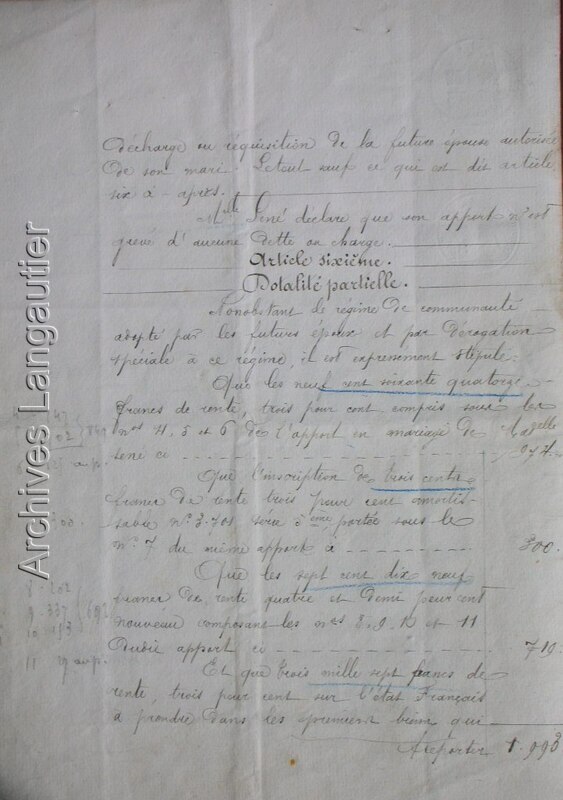 décharge ou réquisition de la future épouse autorisée
de son mari. Le tout sauf ce qui est dit article
six ci-après.
Mlle Sené déclare que son apport n'est
grevé d'aucune dette ou charge.
Article sixième.
Dotalité partielle.
Nonobstant le régime de communauté
adopté par les futurs époux et par dérogation
spéciale à ce régime, il est expressément stipulé:
Que les neuf cent soixante quatorze
francs de rente, trois pour cent compris sous les
nos 4, 5 et 6 de l'apport en mariage de Madelle
Sené ci 974.
Que l'inscription de trois cents
francs de rente trois pour cent amortis-
sable n° 3.701 série 5eme portée sous le
n° 7 du même apport à 300.
Que les sept cent dix neuf
francs de rente quatre et demi pour cent
nouveau composant les nos 8, 9, 10 et 11
dudit apport ci 719.
Et que trois mille sept francs de
rente, trois pour cent sur l'état Français
à prendre dans les premiers biens qui
A reporter 1.993
8 - 202
9. 337
10. 153
692
11
Archives Langautier